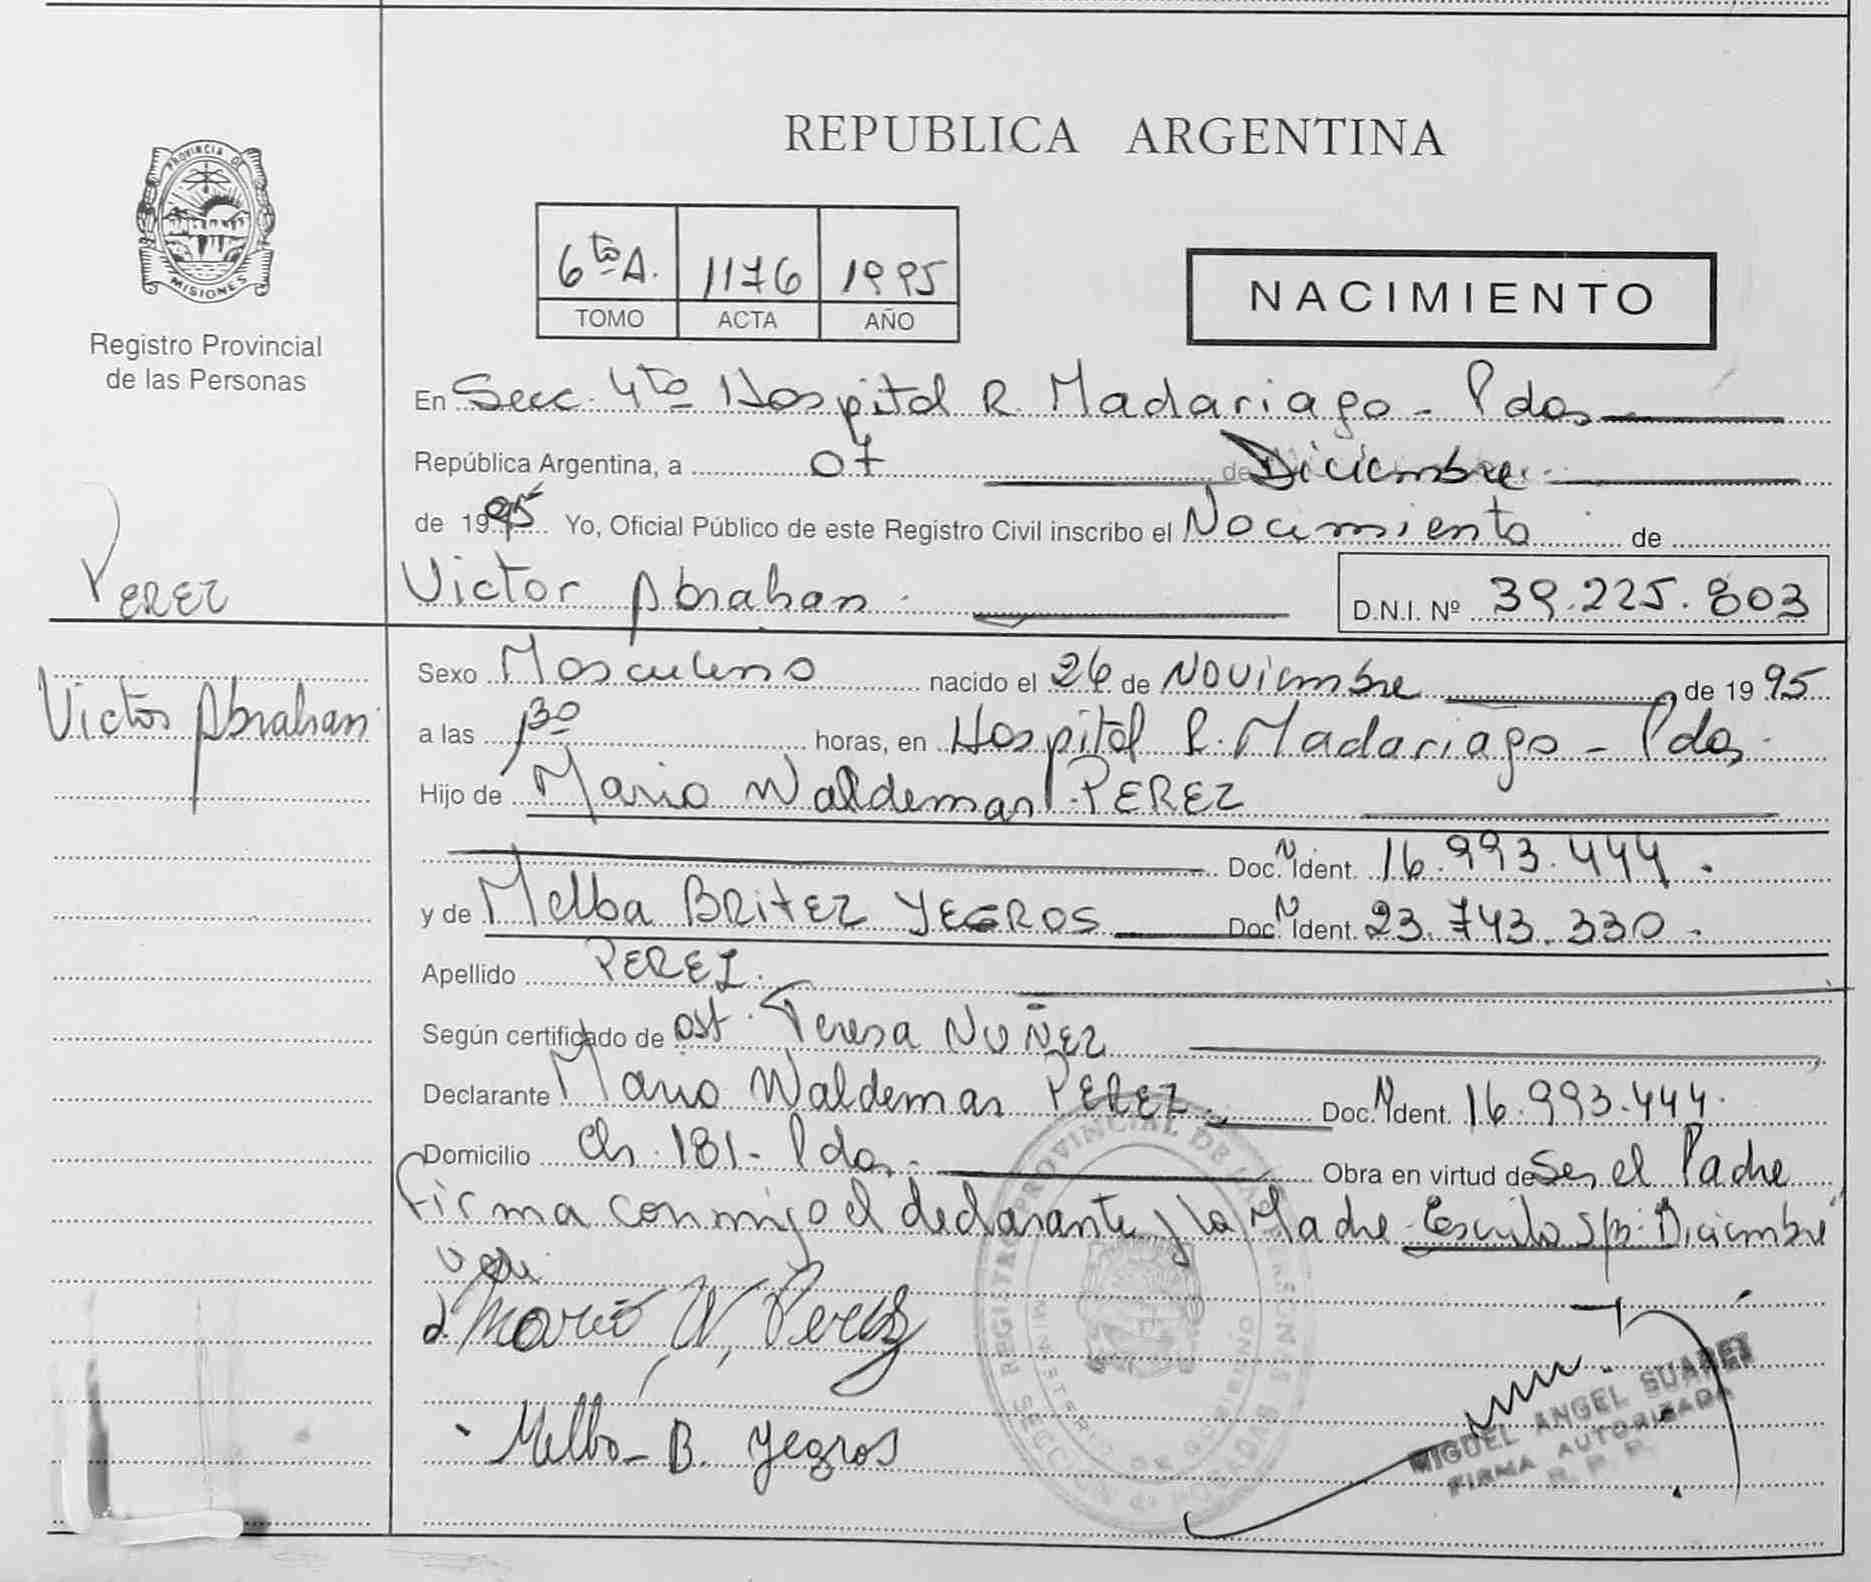 REPUBLICA ARGENTINA
PROVINCIA DE
MISIONES
Registro Provincial
de las Personas
6to A. 1176 1995
TOMO ACTA AÑO
NACIMIENTO
En Secc. 4ta Hospital R. Madariaga - Pdas
República Argentina, a 07 de Diciembre
de 1995 Yo, Oficial Público de este Registro Civil inscribo el Nacimiento de
PEREZ
Victor Abrahan D.N.I. Nº 39.225.803
Victor Abrahan
Sexo Masculino nacido el 26 de Noviembre de 1995
a las 1,30 horas, en Hospital R. Madariaga - Pdas.
Hijo de Mario Waldemar PEREZ
Doc. N Ident. 16.993.444.
y de Melba BRITEZ YEGROS Doc. N Ident. 23.743.330.
Apellido PEREZ.
Según certificado de Ost. Teresa NUÑEZ
Declarante Mario Waldemar PEREZ. Doc. N Ident. 16.993.444.
Domicilio Ch. 181 - Pdas. Obra en virtud de Ser el Padre
Firma conmigo el declarante y la Madre Escrito S/B: Diciembre
Vale
Mario W. Perez
Melba B. Yegros
REGISTRO PROVINCIAL DE LAS PERSONAS
MINISTERIO DE GOBIERNO
MIGUEL ANGEL SUAREZ
FIRMA AUTORIZADA
R. P. P.